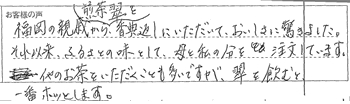 お客様の声
煎茶翠を
福岡の親戚から、香典返しにいただいて、おいしさに驚きました。
それ以来、ふるさとの味として、母と私の分を注文しています。
他のお茶をいただくことも多いですが、翠を飲むと
一番ホッとします。